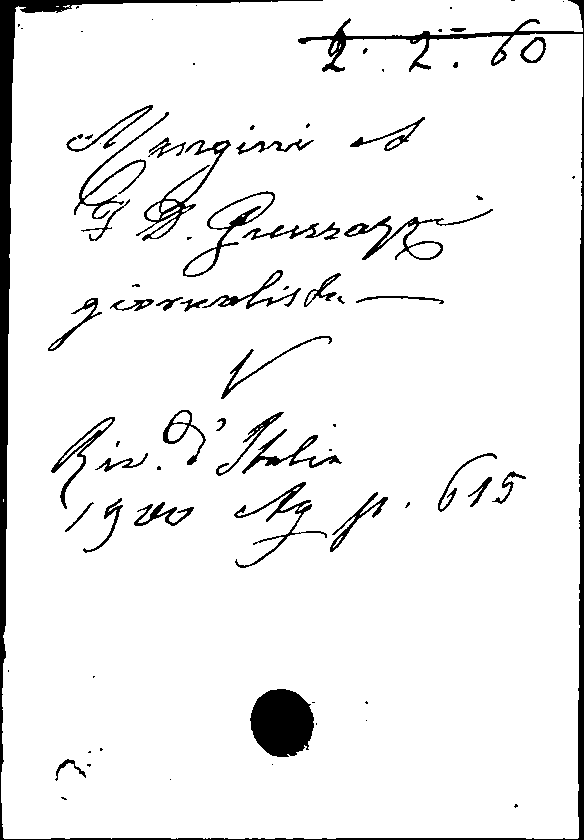 2. 2. 60
Mangini A
F D. Guerrazzi
giornalista
V
Riv. d'Italia
1900 Ag p. 615